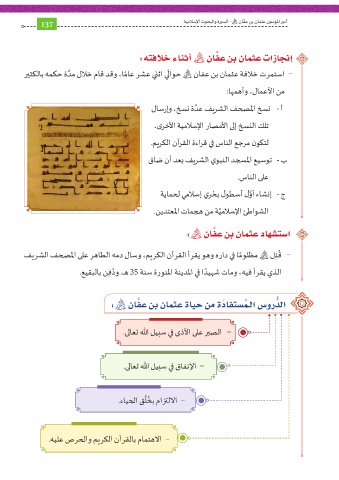 أمير المؤمنين عثمان بن عفّان ﷺ - السيرة والبحوث الإسلامية
137
إنجازات عثمان بن عفّان أثناء خلافته :
- استمرت خلافة عثمان بن عفان حوالَي اثني عشر عامًا، وقد قام خلال مدّة حكمه بالكثير
من الأعمال، وأهمها:
أ - نسخ المصحف الشريف عدّة نسخ، وإرسال
تلك النسخ إلى الأمصار الإسلامية الأخرى،
لتكون مرجع الناس في قراءة القرآن الكريم.
ب - توسيع المسجد النبوي الشريف بعد أن ضاق
على الناس.
ج - إنشاء أوّل أسطول بحْري إسلامي لحماية
الشواطئ الإسلاميّة من هجمات المعتدين.
استشهاد عثمان بن عفّان :
- قُتِل مظلومًا في داره وهو يقرأ القرآن الكريم، وسال دمه الطاهر على المصحف الشريف
الذي يقرأ فيه، ومات شهيدًا في المدينة المنورة سنة 35 هـ، ودُفِن بالبقيع.
الدُّروس المُستفادة من حياة عثمان بن عفّان :
- الصبر على الأذى في سبيل الله تعالى.
- الإنفاق في سبيل الله تعالى.
- الالتزام بخُلُق الحياء.
- الاهتمام بالقرآن الكريم والحرص عليه.